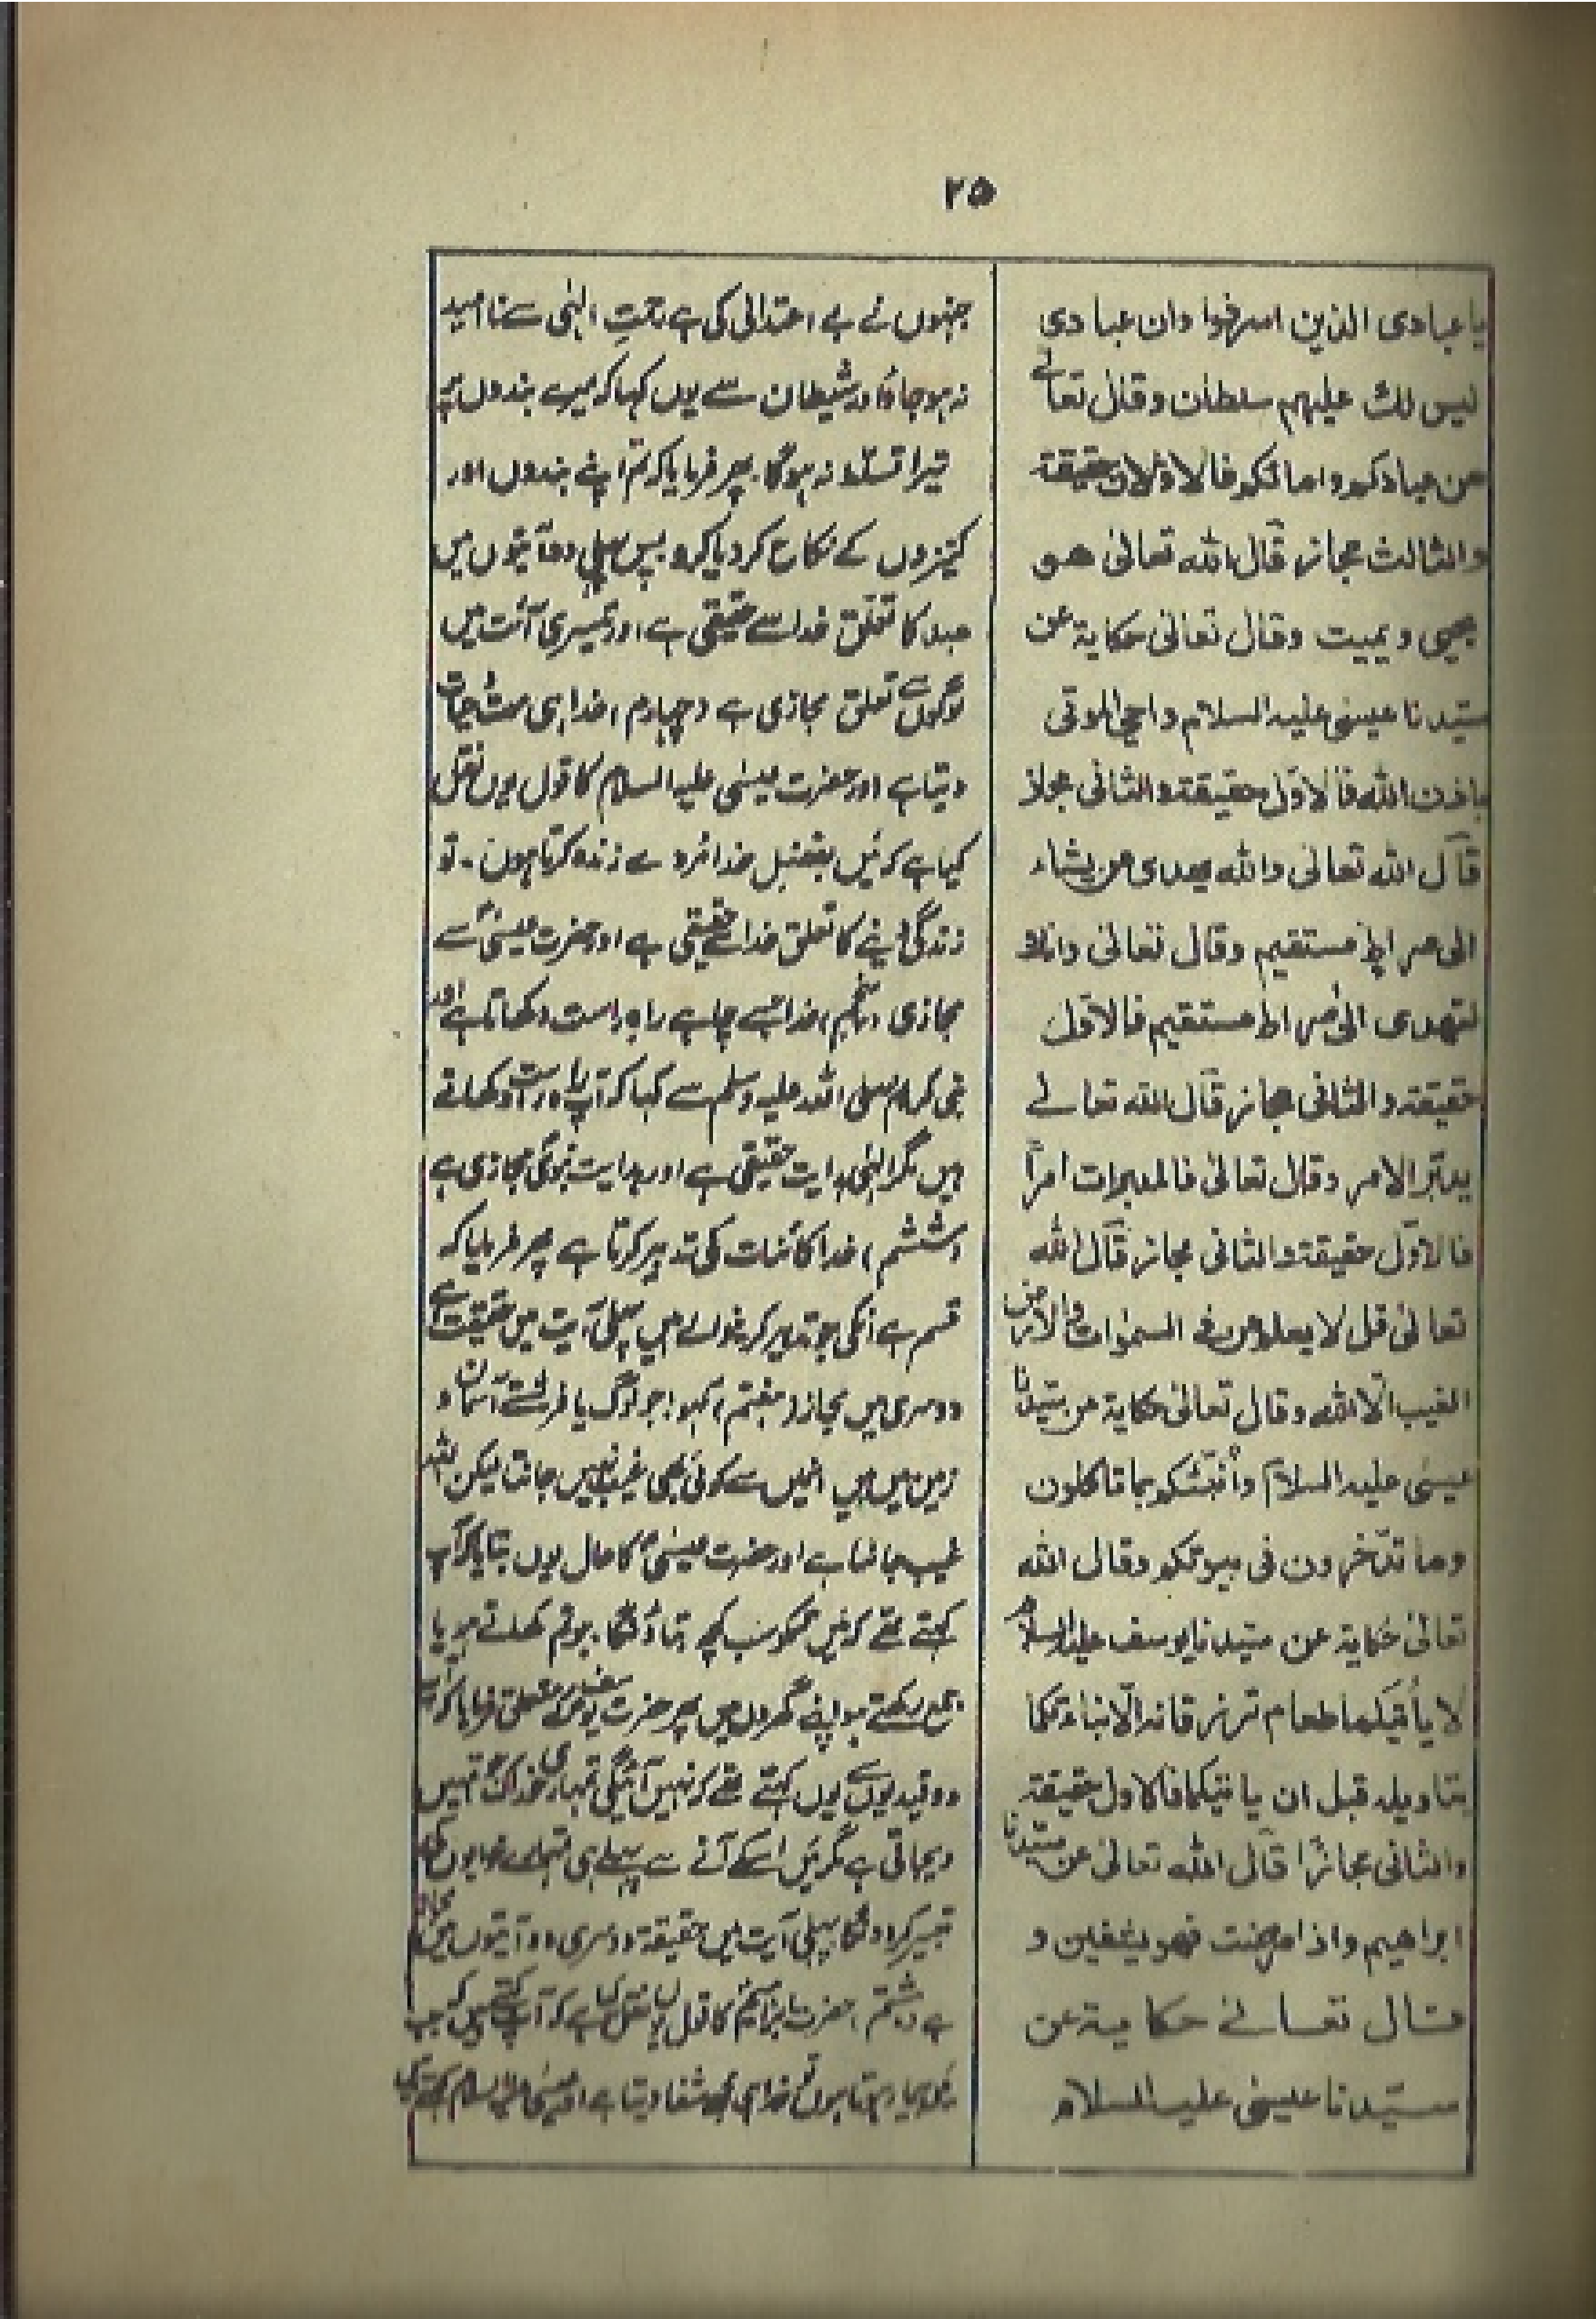 ۲۵
یا عبادی الذین اسرفوا وان عبادی
لیس لك علیهم سلطان وقال تعالے
من عبادکم وامائکم فالاولان حقیقة
والثالث مجاز قال الله تعالیٰ هو
یحیی و یمیت وقال تعالیٰ حکایة عن
سیدنا عیسیٰ علیه السلام واحی الموتی
باذن الله فالاول حقیقة والثانی مجاز
قال الله تعالیٰ والله یهدی من یشاء
الی صراط مستقیم وقال تعالیٰ وانك
لتهدی الیٰ صراط مستقیم فالاول
حقیقة والثانی مجاز قال الله تعالے
یدبر الامر وقال تعالیٰ فالمدبرات امراً
فالاوّل حقیقة والثانی مجاز قال الله
تعالیٰ قل لا یعلم من فی السمٰوات والارض
الغیب الّا الله وقال تعالیٰ حکایة عن سیدنا
عیسیٰ علیه السلام وأنبئکم بما تاکلون
وما تدّخرون فی بیوتکم وقال الله
تعالیٰ حکایة عن سیدنا یوسف علیه السلام
لا یأتیکما طعام ترزقانه الّا نبأتکما
بتاویله قبل ان یاتیکما فالاول حقیقة
والثانی مجازًا قال الله تعالیٰ عن سیدنا
ابراهیم واذا مرضت فهو یشفین و
قال تعالے حکایة عن
سیدنا عیسیٰ علیه السلام
جنہوں نے بے اعتدالی کی ہے رحمتِ الٰہی سے نا امید
نہ ہو جاؤ اور شیطان سے یوں کہا کہ میرے بندوں پر
تیرا تسلّط نہ ہوگا۔ پھر فرمایا کہ تم اپنے بندوں اور
کنیزوں کے نکاح کر دیا کرو۔ پس پہلی دو آیتوں میں
عبد کا تعلّق خدا سے حقیقی ہے اور تیسری آئت میں
لوگوں سے تعلق مجازی ہے (چہارم) خدا ہی موت و حیات
دیتا ہے اور حضرت عیسٰی علیہ السلام کا قول یوں نقل
کیا ہے کہ میں بفضل خدا مردے زندہ کرتا ہوں۔ تو
زندگی دینے کا تعلق خدا سے حقیقی ہے اور حضرت عیسٰیؑ سے
مجازی (پنجم) خدا جسے چاہے راہ راست دکھاتا ہے اور
نبی کرام صلی اللہ علیہ وسلم سے کہا کہ آپ راہ راست دکھاتے
ہیں مگر الٰہی ہدایت حقیقی ہے اور ہدایت نبوی مجازی ہے
(ششم) خدا کائنات کی تدبیر کرتا ہے پھر فرمایا کہ
قسم ہے انکی جو تدبیر کرنیوالے ہیں پہلی آیت میں حقیقت ہے
دوسری میں مجاز (ہفتم) کہو! جو لوگ یا فرشتے آسمان و
زمین میں ہیں انمیں سے کوئی بھی غیب نہیں جانتا لیکن اللہ
غیب جانتا ہے اور حضرت عیسٰیؑ کا حال یوں بتایا کہ آپ
کہتے تھے کہ میں تمکو سب کچھ بتاؤنگا۔ جو تم کھاتے ہو یا
جمع رکھتے ہو اپنے گھروں میں پھر حضرت یوسفؑ کے متعلق فرمایا کہ آپ
دو قیدیوں سے یوں کہتے تھے کہ نہیں آئیگی تمہاری خوراک جو تمہیں
دیجاتی ہے مگر میں اسکے آنے سے پہلے ہی تمہارے خوابوں کی
تعبیر کر دونگا پہلی آیت میں حقیقة دوسری دو آیتوں میں مجاز
ہے (ہشتم) حضرت ابراہیمؑ کا قول یوں نقل کیا ہے کہ آپ کہتے ہیں کہ جب
میں بیمار ہوتا ہوں تو خدا ہی مجھے شفا دیتا ہے اور عیسٰی علیہ السلام کہتے ہیں